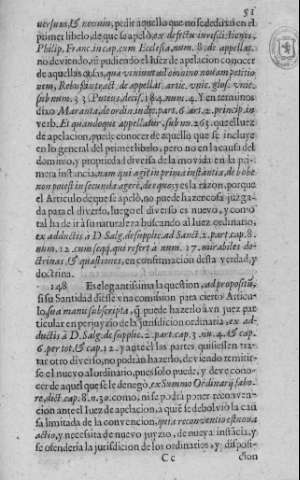 51
versus, & novum, pedir aquello que no se deduxo en el
primer libelo, de que se apeló, ex defectu iurisdictionis,
Philip. Franc. in cap. cum Ecclesia, num. 8. de appellat.
no deviendo, ni pudiendo el Iuez de apelacion conocer
de aquellas cosas, qua veniunt ad omnino novam petitio
nem,
sub num. 33. Puteus, decis. 184. num. 4. Y en terminos
dixo Maranta, de ordin. iudic. part. 6. art. 2. princip. in
verb. Et quandoque appellatur, sub num. 263. que el Iuez
de apelacion, puede conocer de aquello que se incluye
en lo general del primer libelo, pero no en la causa del
dominio, y propriedad diversa de la movida en la pri-
mera instancia, nam qui agit in prima instantia, de
non potest in secunda agere, de equo, y es la razon, porque
el Articulo de que se apeló, no puede hazer cosa juzga-
da para el diverso, luego el diverso es nuevo, y como
tal ha de ir à su naturaleza buscando al Iuez ordinario,
ex adductis à D. Salg. de supplic. ad Sanct. 2. part. cap. 8.
num. 12. cum seqq. qui refert à num. 17. mirabiles do-
ctrinas, & quæstiones, en confirmacion desta verdad, y
doctrina.
148 Es elegantissima la question, ad propositũ,
si su Santidad diesse vna comission para cierto Articu-
lo, sua manu subscripta, q̃ puede hazerlo à vn juez par
ticular en perjuyzio de la jurisdicion ordinaria, ex ad-
ductis à D. Salg. de supplic. 2. part. cap. 3. num. 4. & cap.
6. per tot. & cap. 12. y ante èl las partes, quisiessen tra-
tar otro diverso, no podràn hazerlo, deviendo remitir-
se el nuevo al ordinario, pues solo puede, y deve cono-
cer de aquel que se le denegó, ex Summo Ordinarij labo
re, dict. cap. 8. n. 30. como, ni se podrà poner reconven-
cion ante el Iuez de apelacion, a quiẽ se debolviò la cau
sa limitada de la convencion, quia reconventio est nova
actio, y necessita de nuevo juyzio, de nueva instãcia, y
se ofenderia la jurisdicion de los ordinarios, y disposi-
Cc cion